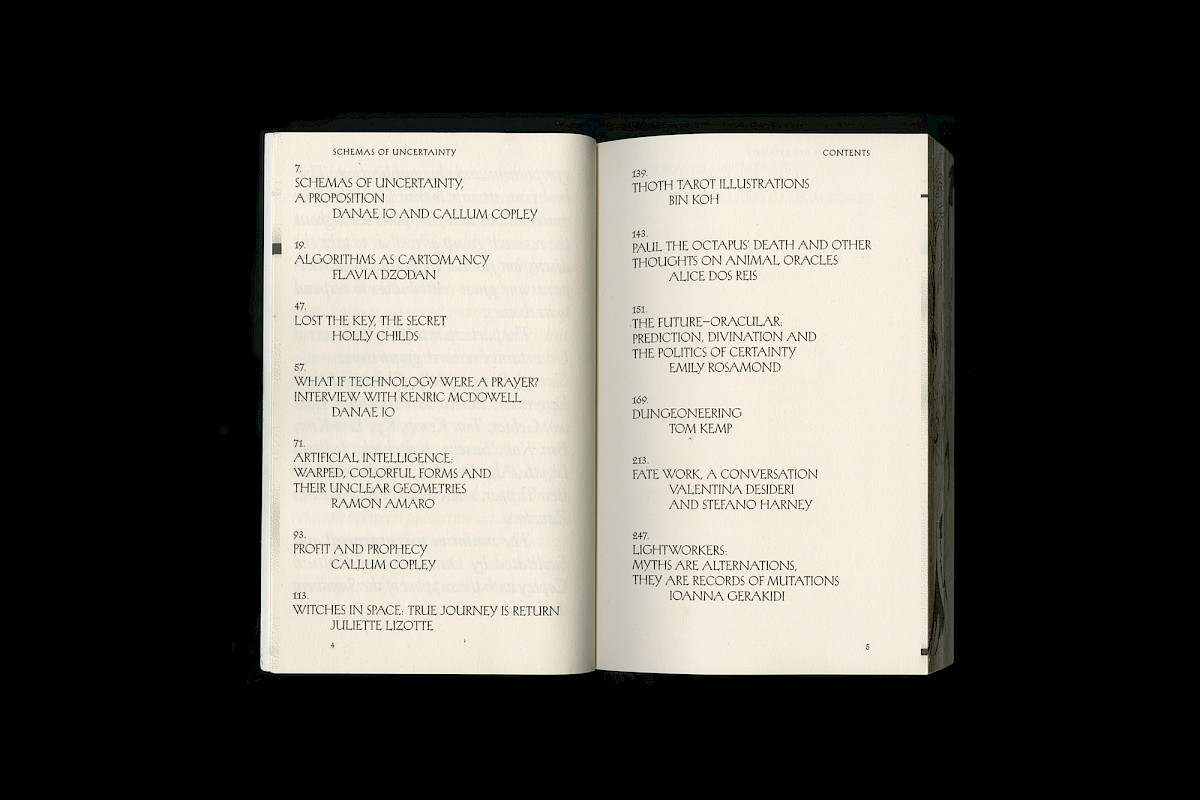 SCHEMAS OF UNCERTAINTY
7.
SCHEMAS OF UNCERTAINTY,
A PROPOSITION
DANAE IO AND CALLUM COPLEY
19.
ALGORITHMS AS CARTOMANCY
FLAVIA DZODAN
47.
LOST THE KEY, THE SECRET
HOLLY CHILDS
57.
WHAT IF TECHNOLOGY WERE A PRAYER?
INTERVIEW WITH KENRIC MCDOWELL
DANAE IO
71.
ARTIFICIAL INTELLIGENCE:
WARPED, COLORFUL FORMS AND
THEIR UNCLEAR GEOMETRIES
RAMON AMARO
93.
PROFIT AND PROPHECY
CALLUM COPLEY
113.
WITCHES IN SPACE: TRUE JOURNEY IS RETURN
JULIETTE LIZOTTE
4
CONTENTS
139.
THOTH TAROT ILLUSTRATIONS
BIN KOH
143.
PAUL THE OCTAPUS' DEATH AND OTHER
THOUGHTS ON ANIMAL ORACLES
ALICE DOS REIS
151.
THE FUTURE–ORACULAR:
PREDICTION, DIVINATION AND
THE POLITICS OF CERTAINTY
EMILY ROSAMOND
169.
DUNGEONEERING
TOM KEMP
213.
FATE WORK, A CONVERSATION
VALENTINA DESIDERI
AND STEFANO HARNEY
247.
LIGHTWORKERS:
MYTHS ARE ALTERNATIONS,
THEY ARE RECORDS OF MUTATIONS
IOANNA GERAKIDI
5